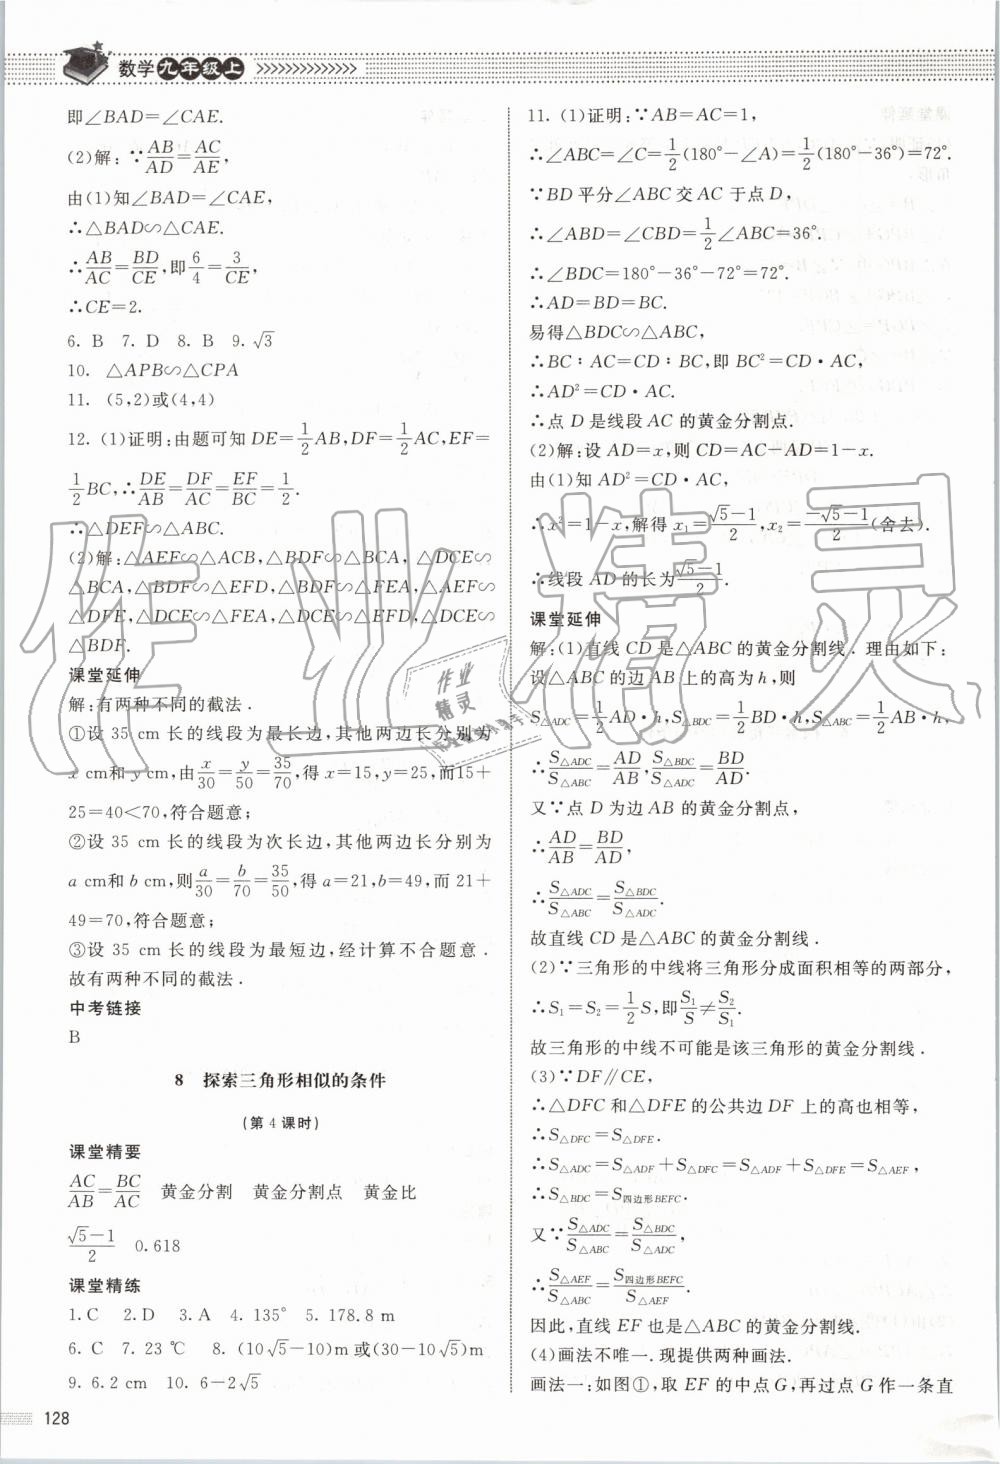 数学九年级上
即∠BAD=∠CAE.
(2)解:∵AB/AD=AC/AE,
由(1)知∠BAD=∠CAE,
∴△BAD∽△CAE.
∴AB/AC=BD/CE,即6/4=3/CE,
∴CE=2.
6. B 7. D 8. B 9. √3
10. △APB∽△CPA
11. (5,2)或(4,4)
12. (1)证明:由题可知 DE=1/2AB,DF=1/2AC,EF=
1/2BC,∴DE/AB=DF/AC=EF/BC=1/2.
∴△DEF∽△ABC.
(2)解:△AEF∽△ACB,△BDF∽△BCA,△DCE∽
△BCA,△BDF∽△EFD,△BDF∽△FEA,△AEF∽
△DFE,△DCE∽△FEA,△DCE∽△EFD,△DCE∽
△BDF.
课堂延伸
解:有两种不同的截法.
①设 35 cm 长的线段为最长边,其他两边长分别为
x cm和 y cm,由x/30=y/50=35/70,得 x=15,y=25,而15+
25=40<70,符合题意;
②设 35 cm 长的线段为次长边,其他两边长分别为
a cm和 b cm,则a/30=b/70=35/50,得 a=21,b=49,而 21+
49=70,符合题意;
③设 35 cm 长的线段为最短边,经计算不合题意.
故有两种不同的截法.
中考链接
B
8 探索三角形相似的条件
(第 4 课时)
课堂精要
AC/AB=BC/AC 黄金分割 黄金分割点 黄金比
(√5-1)/2 0.618
课堂精练
1. C 2. D 3. A 4. 135° 5. 178.8 m
6. C 7. 23 ℃ 8. (10√5-10)m 或(30-10√5)m
9. 6.2 cm 10. 6-2√5
128
11. (1)证明:∵AB=AC=1,
∴∠ABC=∠C=1/2(180°-∠A)=1/2(180°-36°)=72°.
∵BD 平分∠ABC 交 AC 于点 D,
∴∠ABD=∠CBD=1/2∠ABC=36°.
∴∠BDC=180°-36°-72°=72°.
∴AD=BD=BC.
易得△BDC∽△ABC,
∴BC∶AC=CD∶BC,即 BC²=CD·AC,
∴AD²=CD·AC.
∴点 D 是线段 AC 的黄金分割点.
(2)解:设 AD=x,则 CD=AC-AD=1-x.
由(1)知 AD²=CD·AC,
∴x²=1-x,解得 x₁=(√5-1)/2,x₂=(-√5-1)/2(舍去).
∴线段 AD 的长为(√5-1)/2.
课堂延伸
解:(1)直线 CD 是△ABC 的黄金分割线.理由如下:
设△ABC 的边 AB 上的高为 h,则
S△ADC=1/2AD·h,S△BDC=1/2BD·h,S△ABC=1/2AB·h,
∴S△ADC/S△ABC=AD/AB,S△BDC/S△ADC=BD/AD.
又∵点 D 为边 AB 的黄金分割点,
∴AD/AB=BD/AD,
∴S△ADC/S△ABC=S△BDC/S△ADC.
故直线 CD 是△ABC 的黄金分割线.
(2)∵三角形的中线将三角形分成面积相等的两部分,
∴S₁=S₂=1/2S,即S₁/S≠S₂/S₁.
故三角形的中线不可能是该三角形的黄金分割线.
(3)∵DF∥CE,
∴△DFC 和△DFE 的公共边 DF 上的高也相等,
∴S△DFC=S△DFE.
∴S△ADC=S△ADF+S△DFC=S△ADF+S△DFE=S△AEF,
∴S△BDC=S四边形BEFC.
又∵S△ADC/S△ABC=S△BDC/S△ADC,
∴S△AEF/S△ABC=S四边形BEFC/S△AEF.
因此,直线 EF 也是△ABC 的黄金分割线.
(4)画法不唯一.现提供两种画法.
画法一:如图①,取 EF 的中点 G,再过点 G 作一条直
作业精灵
作业
精灵